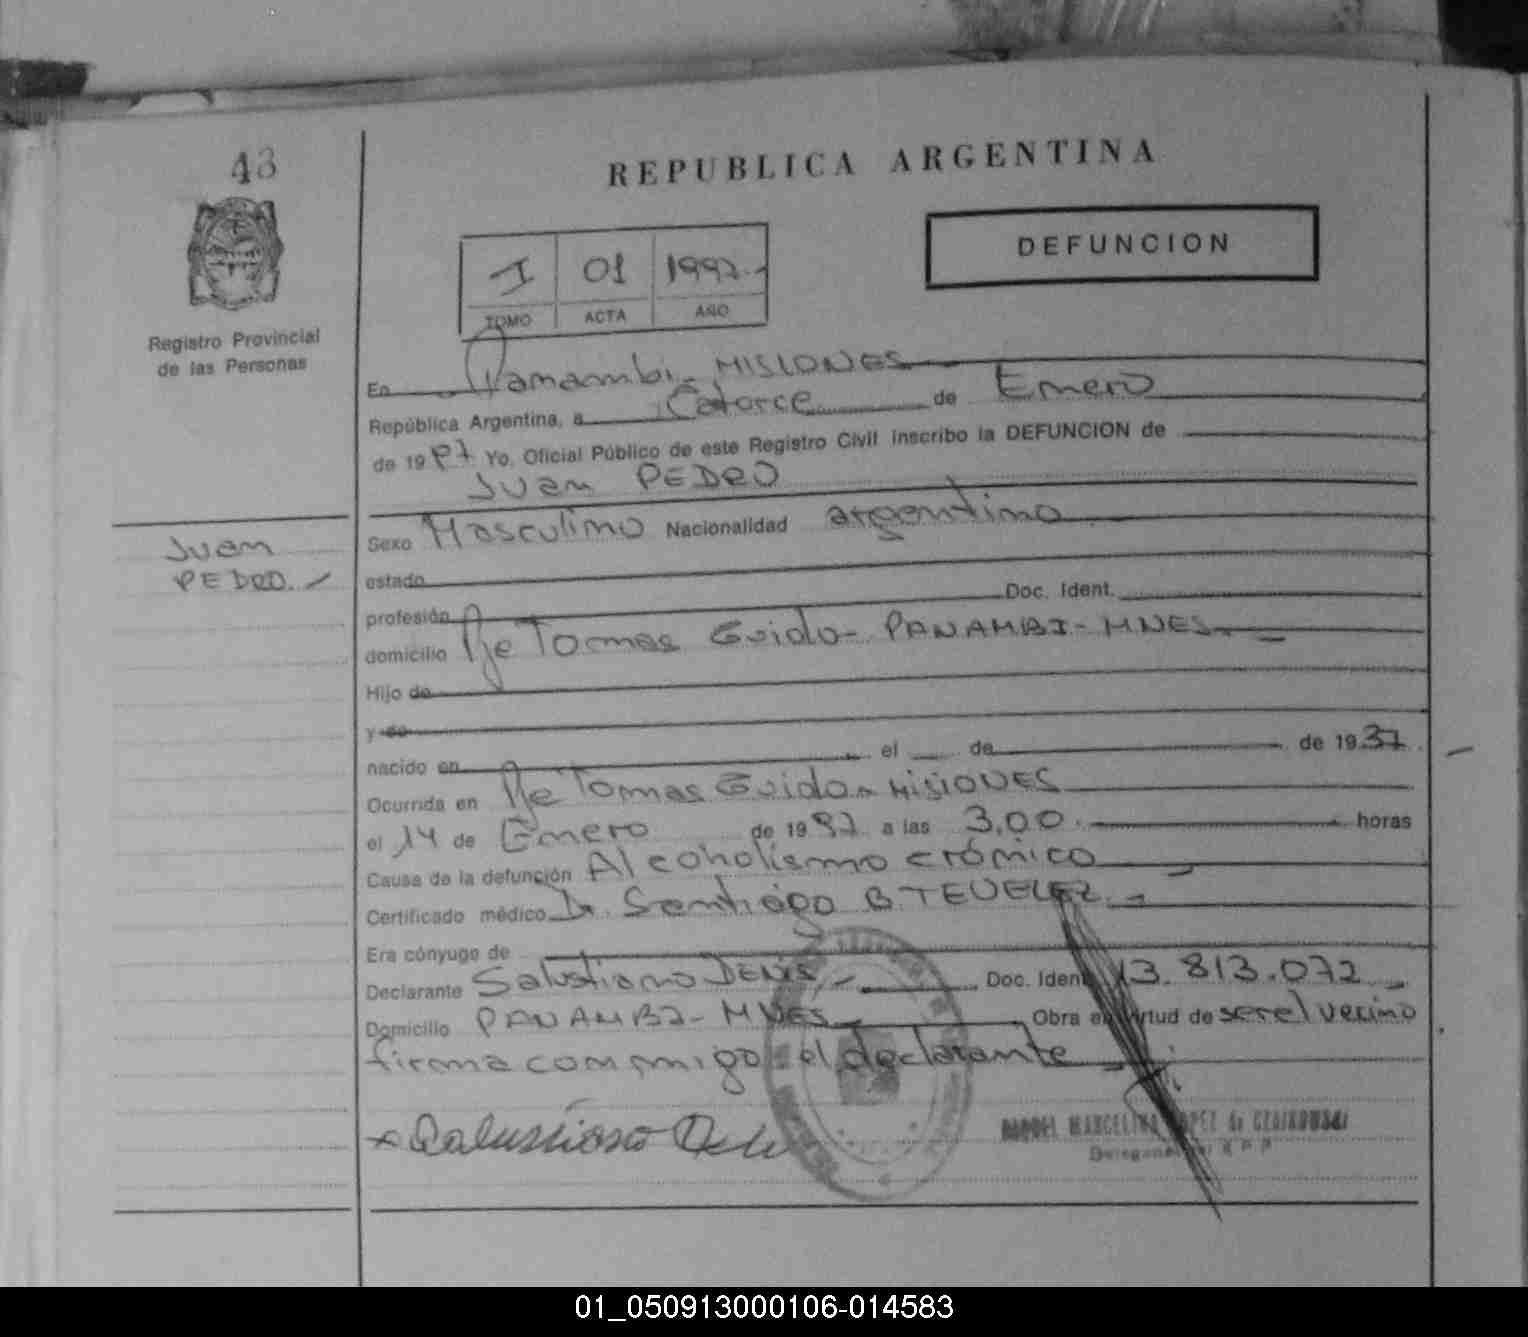 43
REPUBLICA ARGENTINA
DEFUNCION
I 01 1997.-
TOMO ACTA AÑO
Registro Provincial
de las Personas
En Panambi - MISIONES
República Argentina, a Catorce de Enero
de 1997 Yo, Oficial Público de este Registro Civil inscribo la DEFUNCION de
Juan PEDRO
Juan
PEDRO.-
Sexo Masculino Nacionalidad argentino
estado
profesión Doc. Ident.
domicilio Pje Tomas Guido - PANAMBI - MNES.-
Hijo de
y de
nacido en el de de 1937
Ocurrida en Pje Tomas Guido - MISIONES
el 14 de Enero de 1997 a las 3,00 horas
Causa de la defunción Alcoholismo crónico
Certificado médico Dr. Santiago B.
Era cónyuge de
Declarante Salustiano DENIS.- Doc. Ident 13.813.072
Domicilio PANAMBI - MNES Obra en virtud de ser el vecino
firma conmigo el declarante
MARCELINA LOPEZ de
01_050913000106-014583